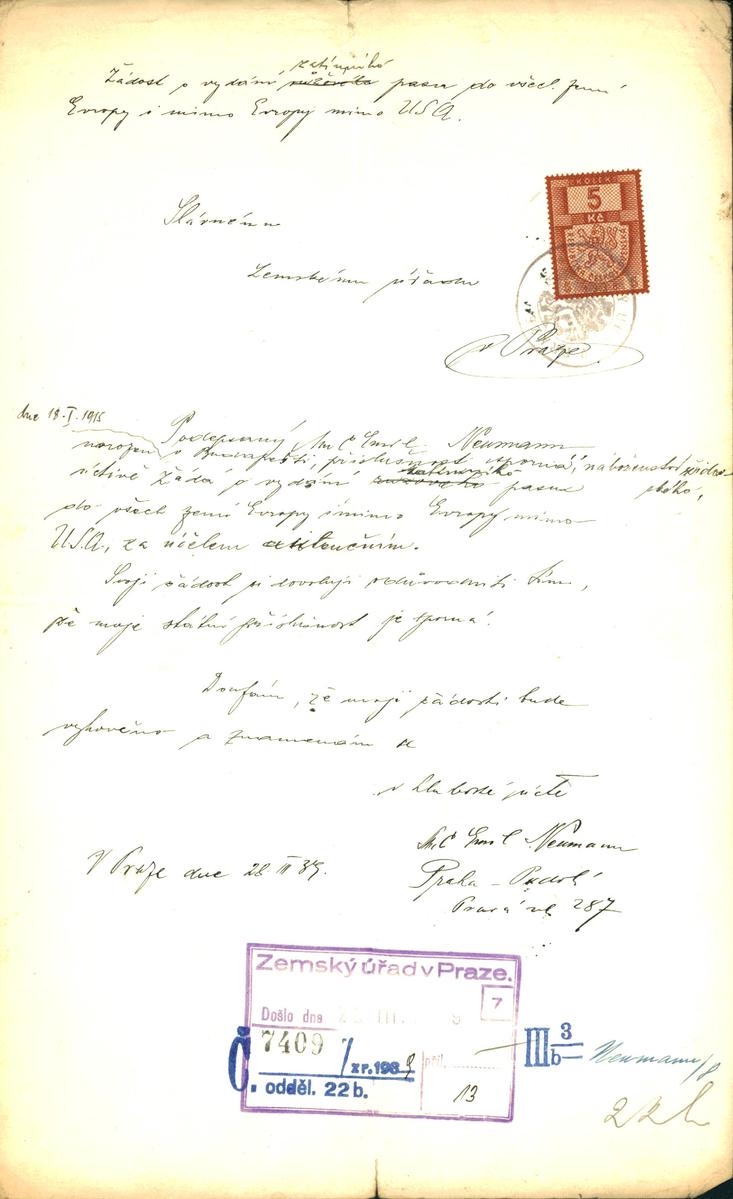 zatímního
Žádost o vydání pasu do všech zemí
Evropy i mimo Evropy mimo USA.
KOLEK
5
Kč
Slavnému
Zemskému úřadu
v Praze.
dne 18.I.1915
Podepsaný MUC Emil Neumann
narozen v Budapešti, příslušnost sporná, náboženství židov-
ského,
zatímního
uctivě žádá o vydání pasu
do všech zemí Evropy i mimo Evropy mimo
USA, za účelem existenčním.
Svoji žádost si dovoluji odůvodniti tím,
že moje státní příslušnost je sporná.
Doufám, že mojí žádosti bude
vyhověno a znamenám se
v hluboké úctě
MUC Emil Neumann
V Praze dne 28 III 39.
Praha - Podolí
Pravá ul 287
Zemský úřad v Praze.
7
Došlo dne III. 9
7409 / zr. 1939
příl.
Č. odděl. 22b.
13
III 3
b
Neumann/8
22b